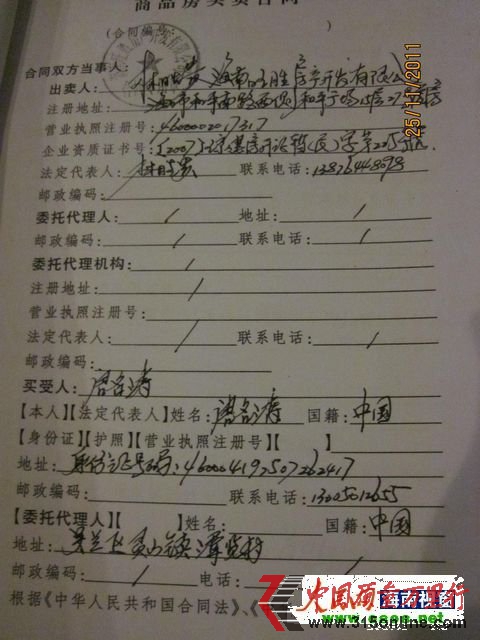 商品房买卖合同
(合同编号: )
合同双方当事人:
出卖人: 海南 胜房产开发有限公司
注册地址: 海口市和平南路西侧和平 15层27 房
营业执照注册号: 4600002017317
企业资质证书号: [2007] 房开证暂(民)字第225号
法定代表人: 联系电话: 13876448098
邮政编码:
委托代理人: / 地址: /
邮政编码: / 联系电话: /
委托代理机构: /
注册地址: /
营业执照注册号:
法定代表人: / 联系电话: /
邮政编码:
买受人: 涛
【本人】【法定代表人】姓名: 涛 国籍: 中国
【身份证】【护照】【营业执照注册号】【 】
地址: 身份证号码: 460004197507262417
邮政编码: 联系电话: 13005012655
【委托代理人】【 】姓名: 国籍: 中国
地址: 美兰区灵山镇潭览村
邮政编码: / 电话: /
根据《中华人民共和国合同法》、《
25/11/2011
中国商有万里行
海南视窗
www.315een.net